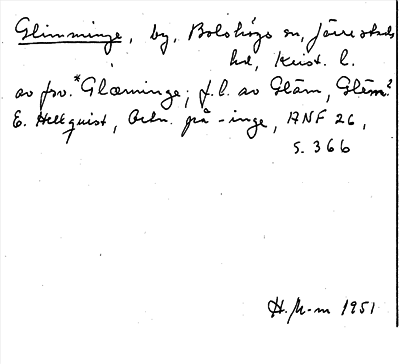 Glimminge, by, Bolshögs sn, Järrestads
hd, Krist. l.
av fsv. *Glæminge; f.l. av Glām, Glēm?
E. Hellquist, Ortn. på -inge, ANF 26,
s. 366
H. M-m 1951